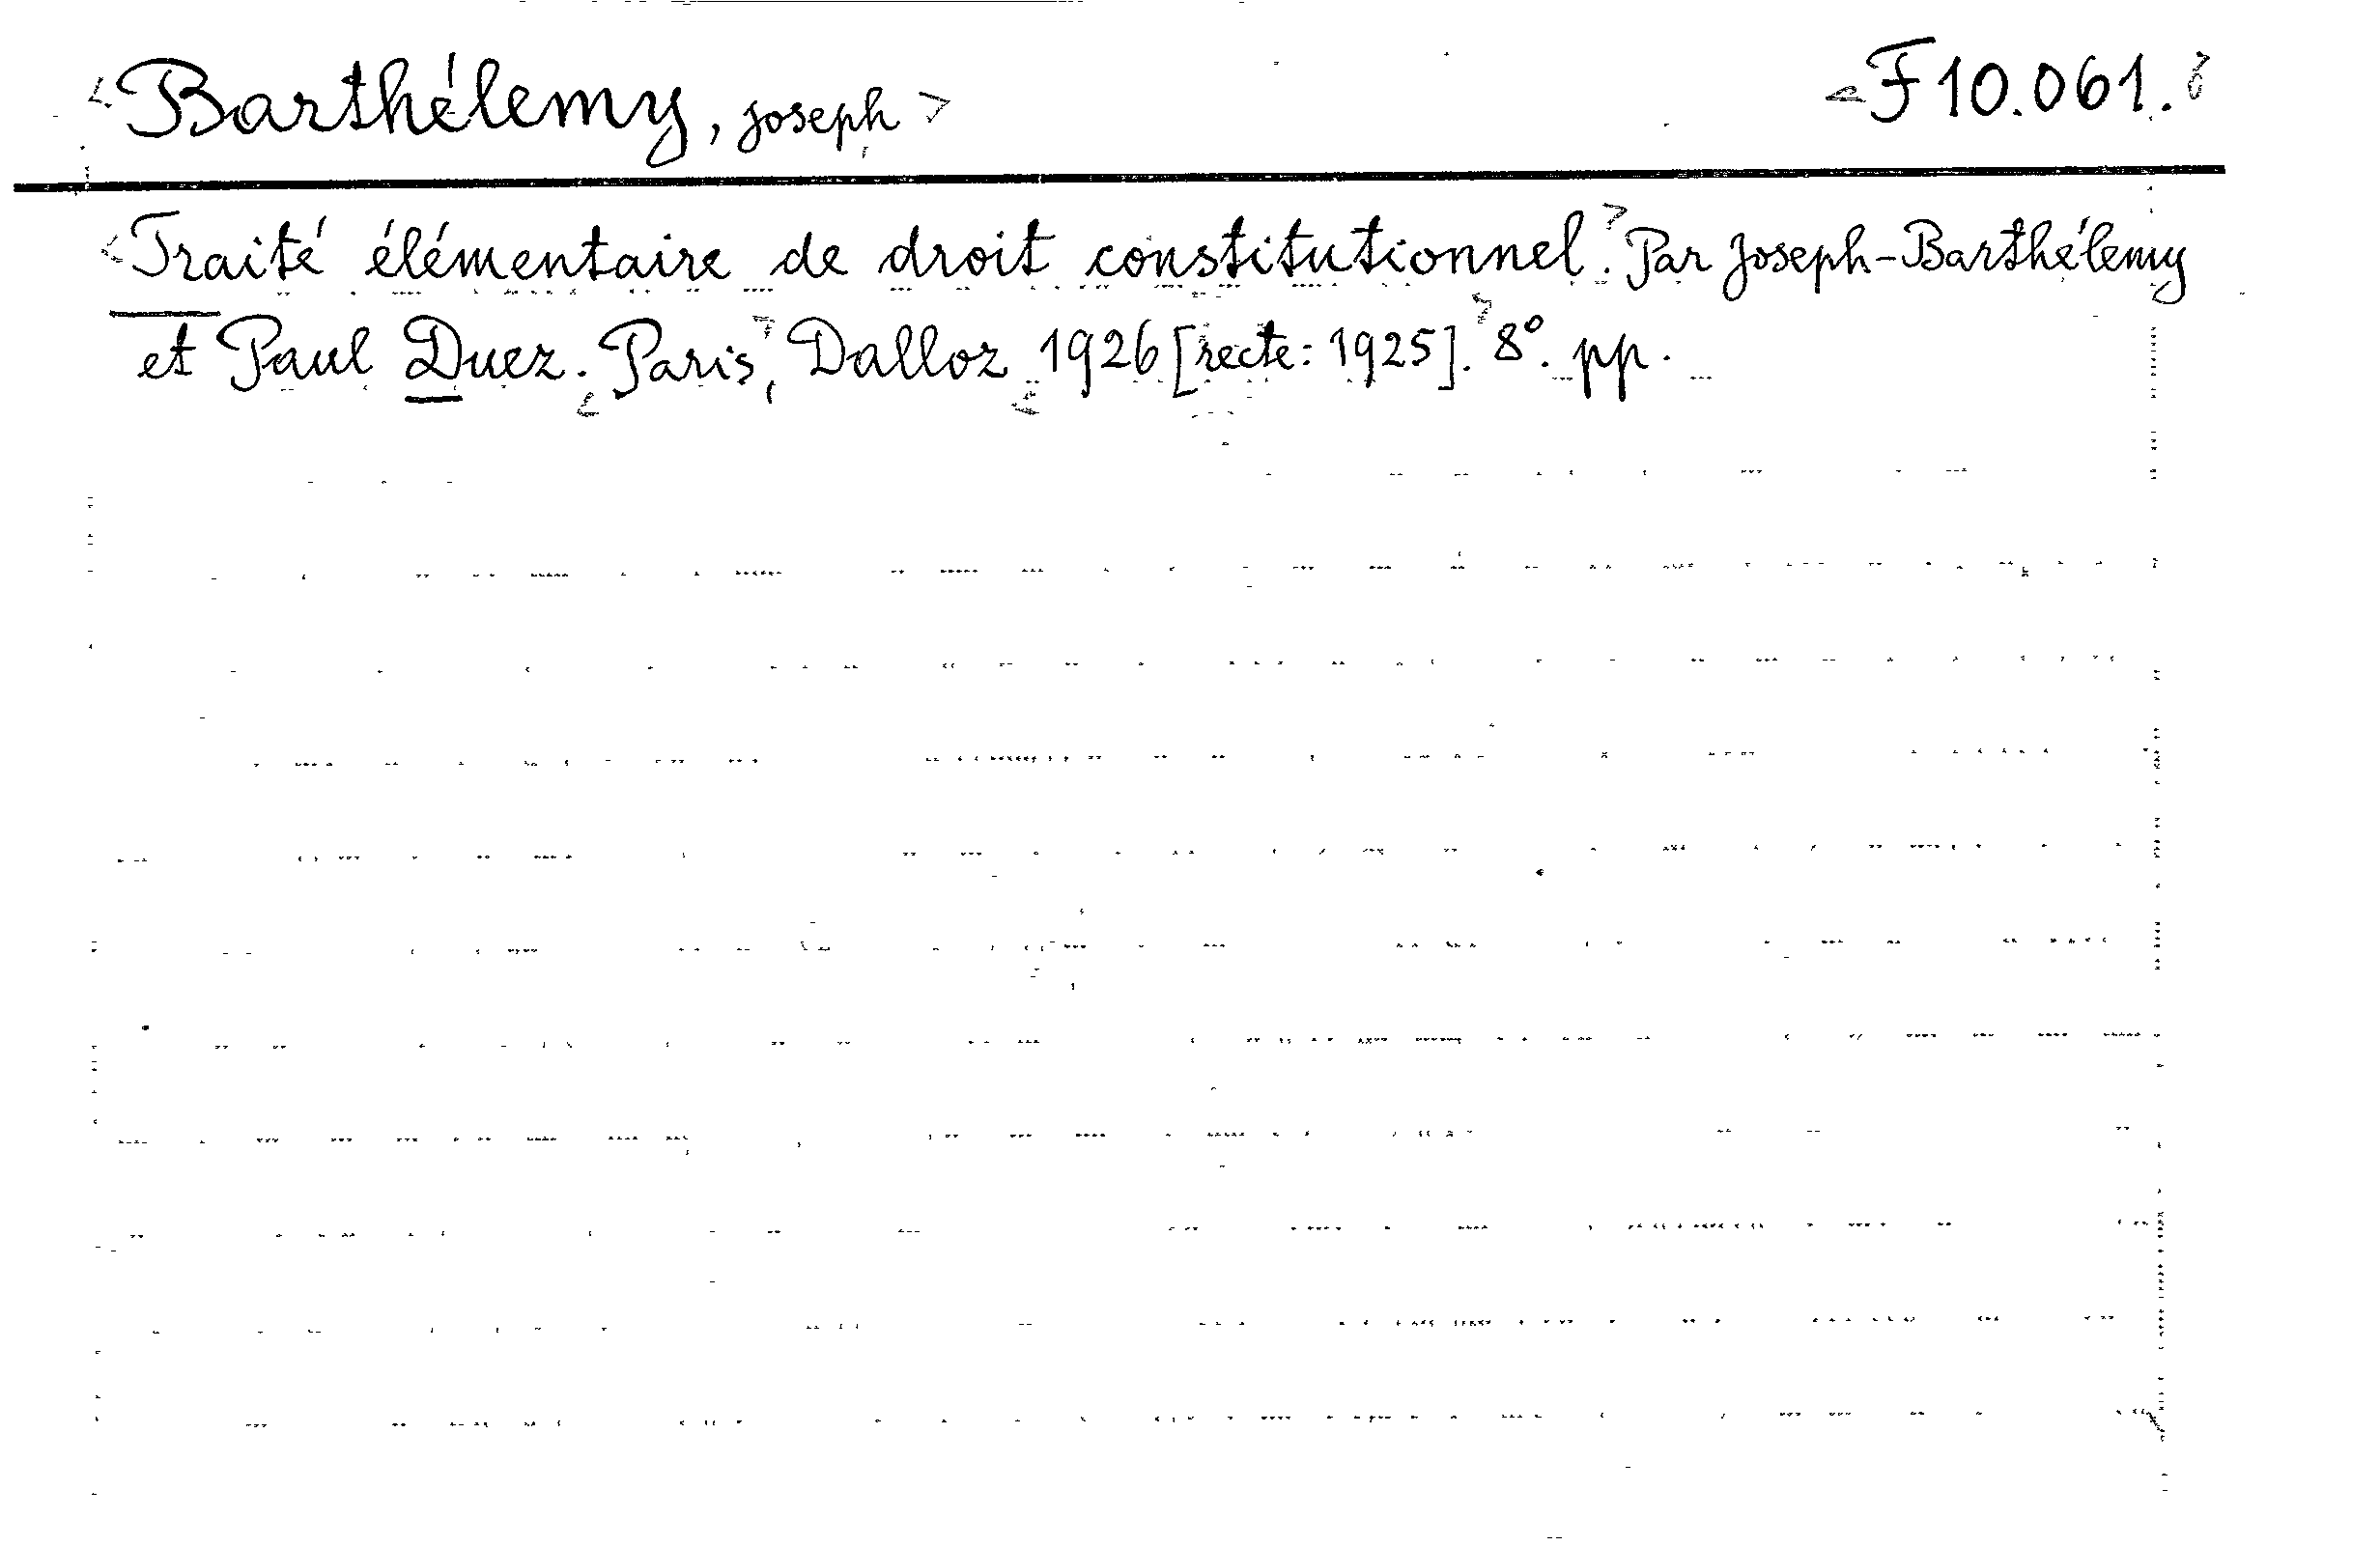 <Barthélemy, Joseph> <F 10.061.>
<Traité élémentaire de droit constitutionnel.> Par Joseph-Barthélemy
et Paul Duez. <Paris>, Dalloz <1926 [recte: 1925].> 8°. pp.